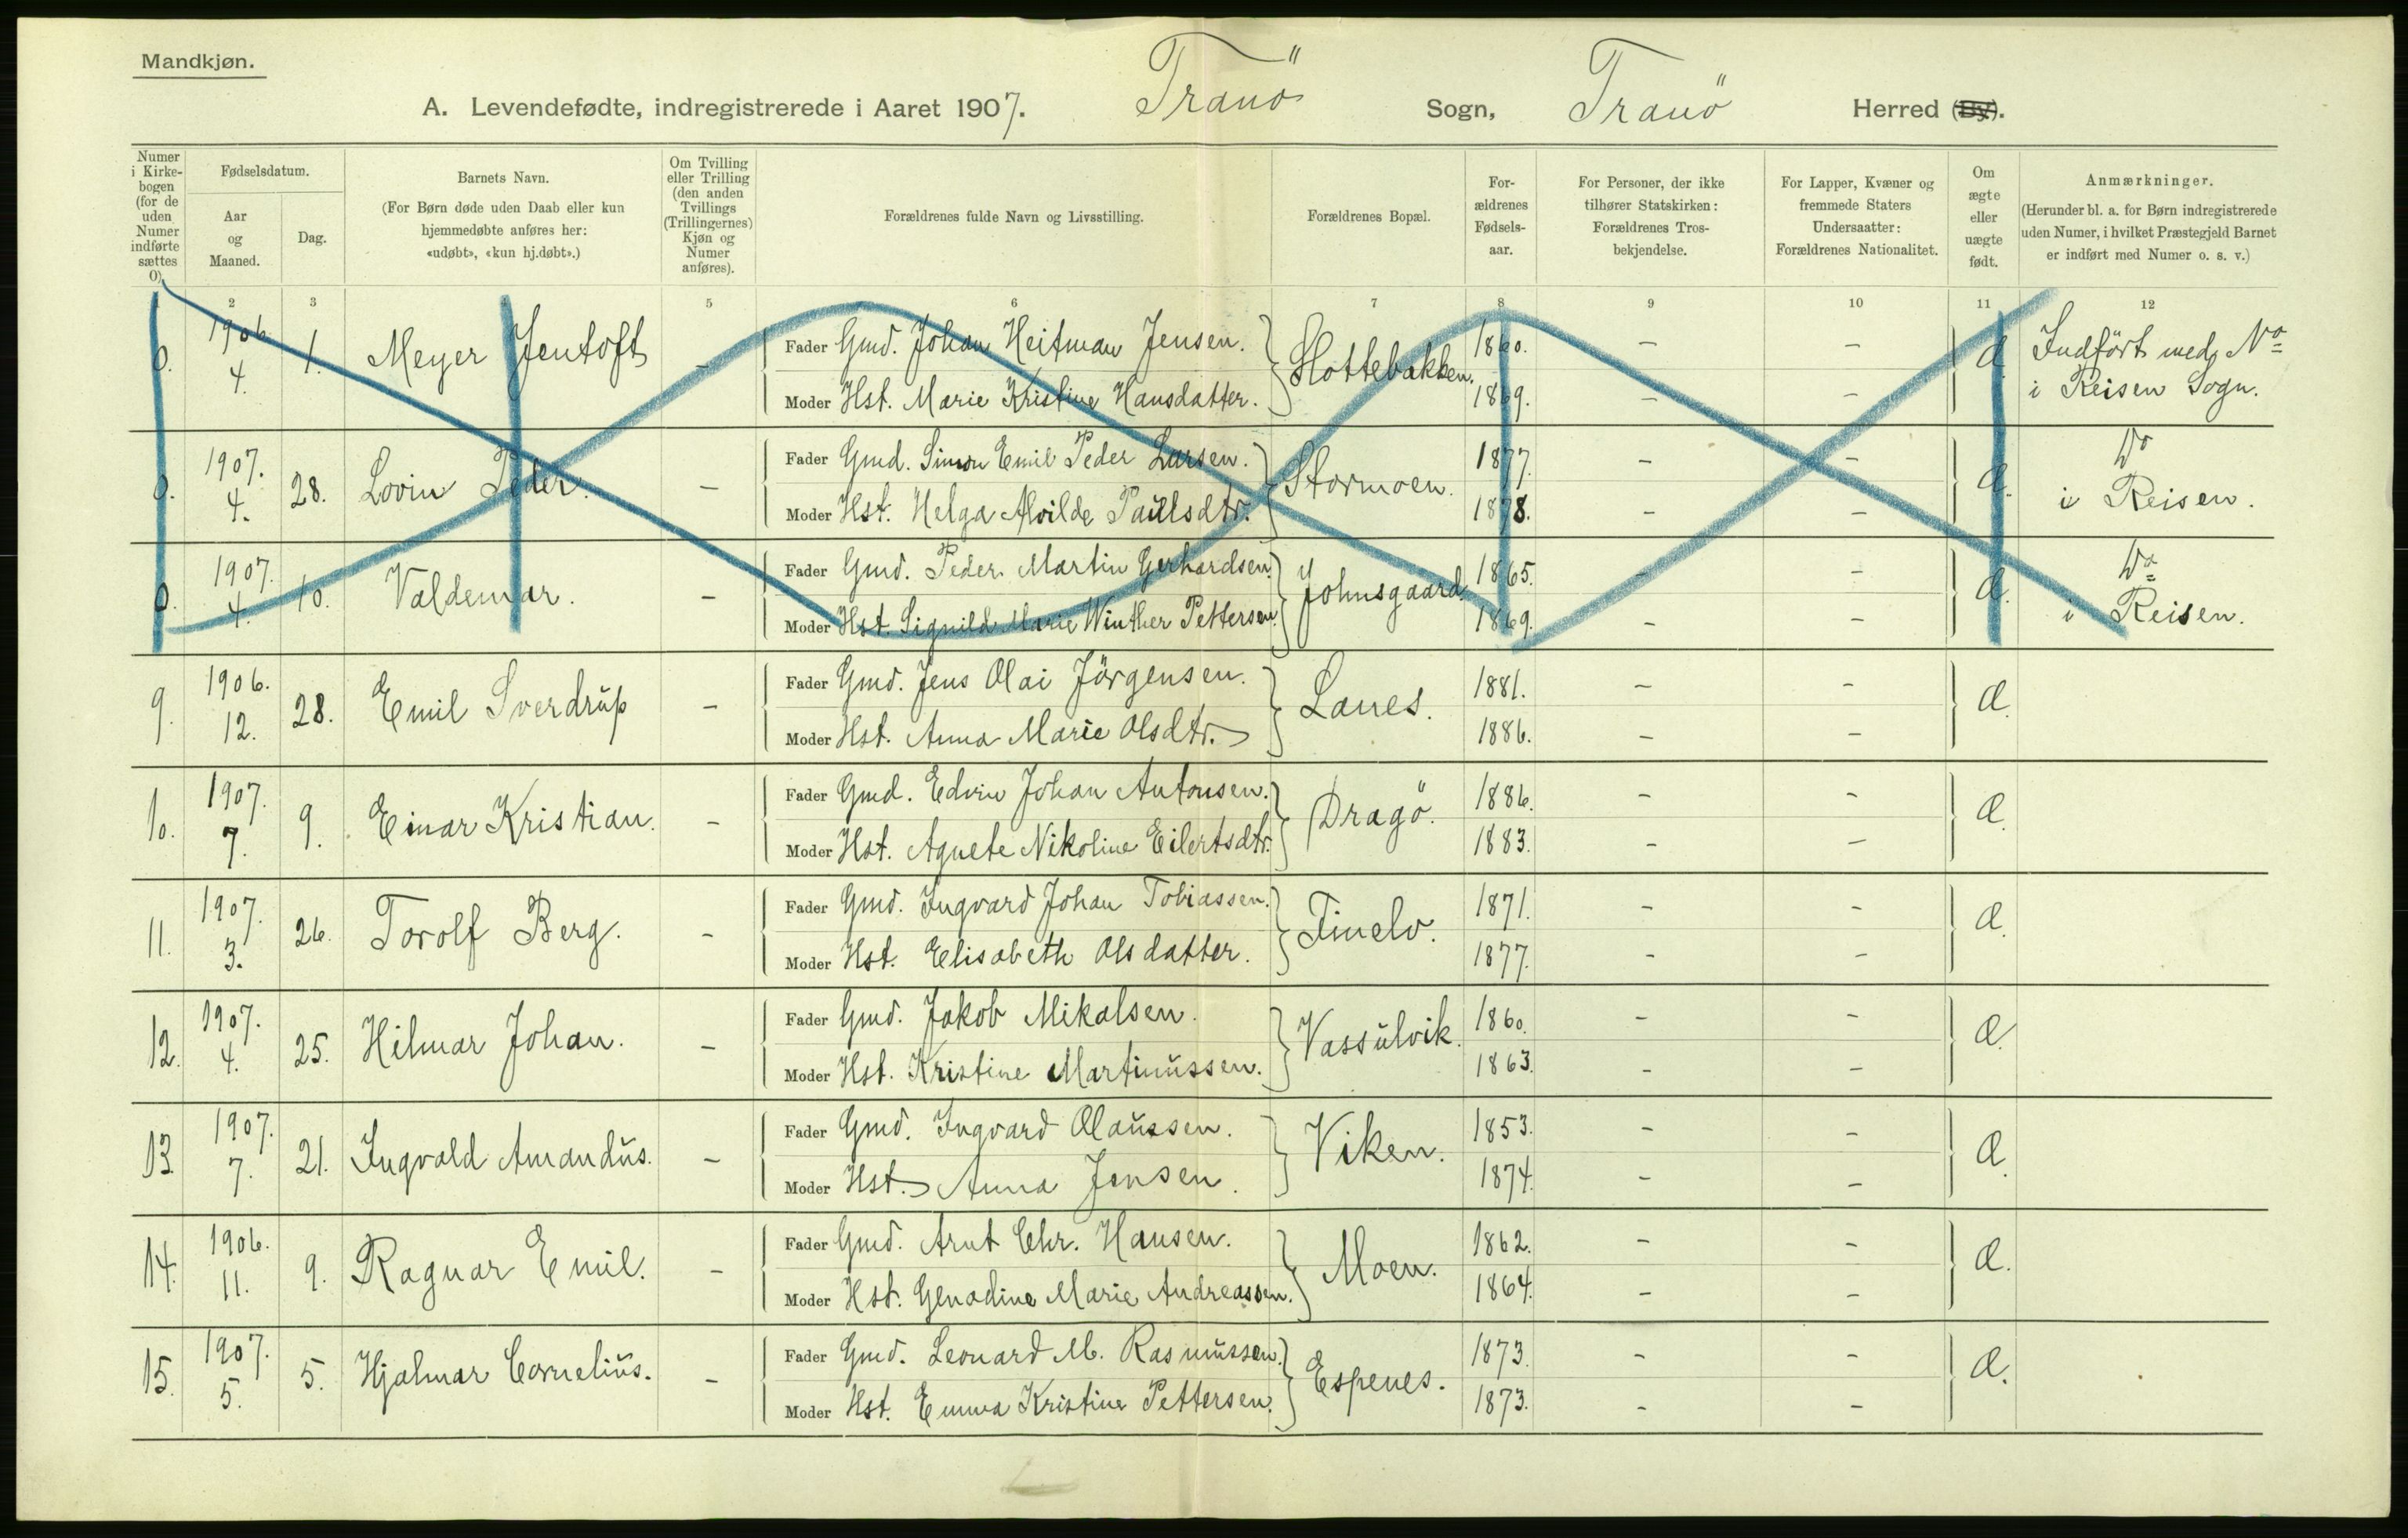 Mandkjøn.
A. Levendefødte, indregistrerede i Aaret 1907. Tranö Sogn, Tranö Herred (By).
Numer i Kirkebogen (for de uden Numer indførte sættes 0).
Fødselsdatum.
Aar og Maaned.
Dag.
Barnets Navn.
(For Børn døde uden Daab eller kun hjemmedøbte anføres her: «udøbt», «kun hj.døbt».)
Om Tvilling eller Trilling (den anden Tvillings (Trillingernes) Kjøn og Numer anføres).
Forældrenes fulde Navn og Livsstilling.
Forældrenes Bopæl.
Forældrenes Fødselsaar.
For Personer, der ikke tilhører Statskirken: Forældrenes Trosbekjendelse.
For Lapper, Kvæner og fremmede Staters Undersaatter: Forældrenes Nationalitet.
Om ægte eller uægte født.
Anmærkninger.
(Herunder bl. a. for Børn indregistrerede uden Numer, i hvilket Præstegjeld Barnet er indført med Numer o. s. v.)
1 2 3 4 5 6 7 8 9 10 11 12
0. 1906 4. 1. Meyer Jentoft - Fader Gmd. Johan Heitman Jensen. Slottebakken. 1860. - - Æ. Indført med No
Moder Hst. Marie Kristine Hansdatter. 1869. - - i Reisen Sogn.
0. 1907. 4. 28. Lovin Peder. - Fader Gmd. Simon Emil Peder Larsen. Stormoen. 1877. - - Æ. Do
Moder Hst. Helga Alvilde Paulsdtr. 1878. - - i Reisen.
0. 1907. 4. 10. Valdemar. - Fader Gmd. Peder Martin Gerhardsen. Johnsgaard. 1865. - - Æ. Do
Moder Hst. Signild Marie Winther Pettersen. 1869. - - i Reisen.
9. 1906. 12. 28. Emil Sverdrup - Fader Gmd. Jens Olai Jörgensen. Lanes. 1881. - - Æ.
Moder Hst. Anna Marie Olsdtr. 1886. - -
10. 1907. 7. 9. Einar Kristian. - Fader Gmd. Edvin Johan Antonsen. Dragö. 1886. - - Æ.
Moder Hst. Agnete Nikoline Eilertsdtr. 1883. - -
11. 1907. 3. 26. Torolf Berg. - Fader Gmd. Ingvard Johan Tobiassen. Finelv. 1871. - - Æ.
Moder Hst. Elisabeth Olsdatter. 1877. - -
12. 1907. 4. 25. Hilmar Johan. - Fader Gmd. Jakob Mikalsen. Vassulvik. 1860. - - Æ.
Moder Hst. Kristine Martinussen. 1863. - -
13. 1907. 7. 21. Ingvald Amandus. - Fader Gmd. Ingvard Olaussen. Viken. 1853. - - Æ.
Moder Hst. Anna Jensen. 1874. - -
14. 1906. 11. 9. Ragnar Emil. - Fader Gmd. Arnt Chr. Hansen. Moen. 1862. - - Æ.
Moder Hst. Genadine Marie Andreassen. 1864. - -
15. 1907. 5. 5. Hjalmar Cornelius. - Fader Gmd. Leonard M. Rasmussen. Espenes. 1873. - - Æ.
Moder Hst. Emma Kristine Pettersen. 1873. - -